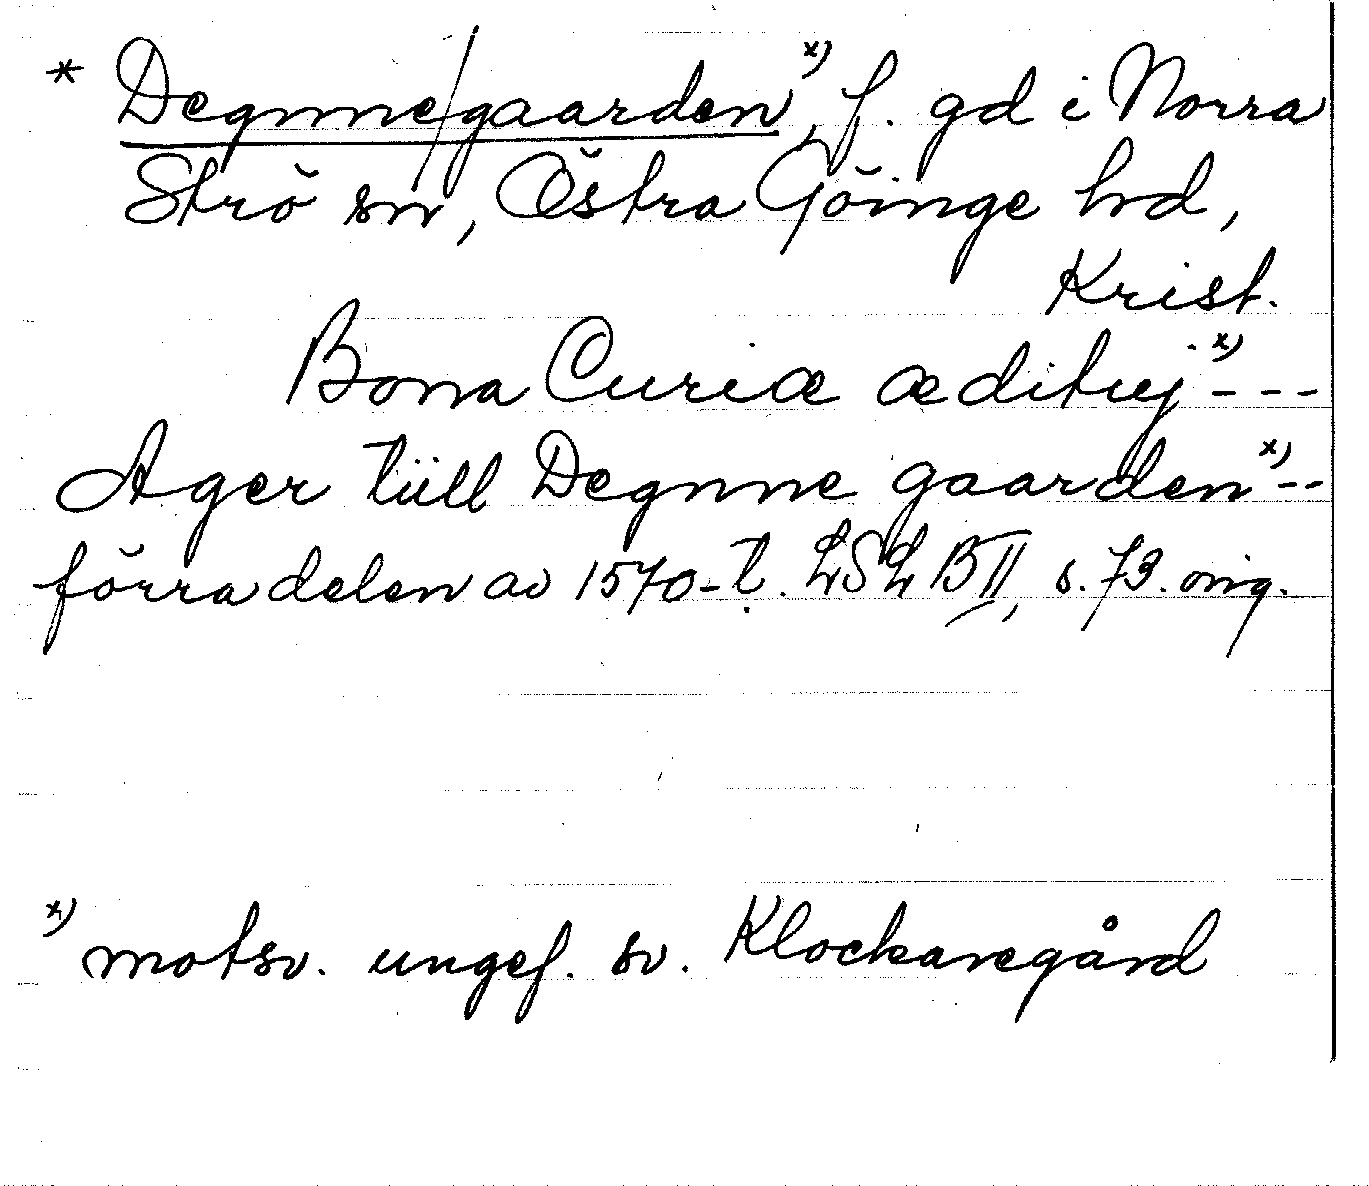 * Degnne/gaarden x), f. gd i Norra
Strö sn, Östra Göinge hd,
Krist.
Bona Curiæ ædituj x) - - -
Ager tüll Degnne gaarden x) - -
förra delen av 1570-t. LSL B II, s. 73. orig.
x) motsv. ungef. sv. Klockaregård